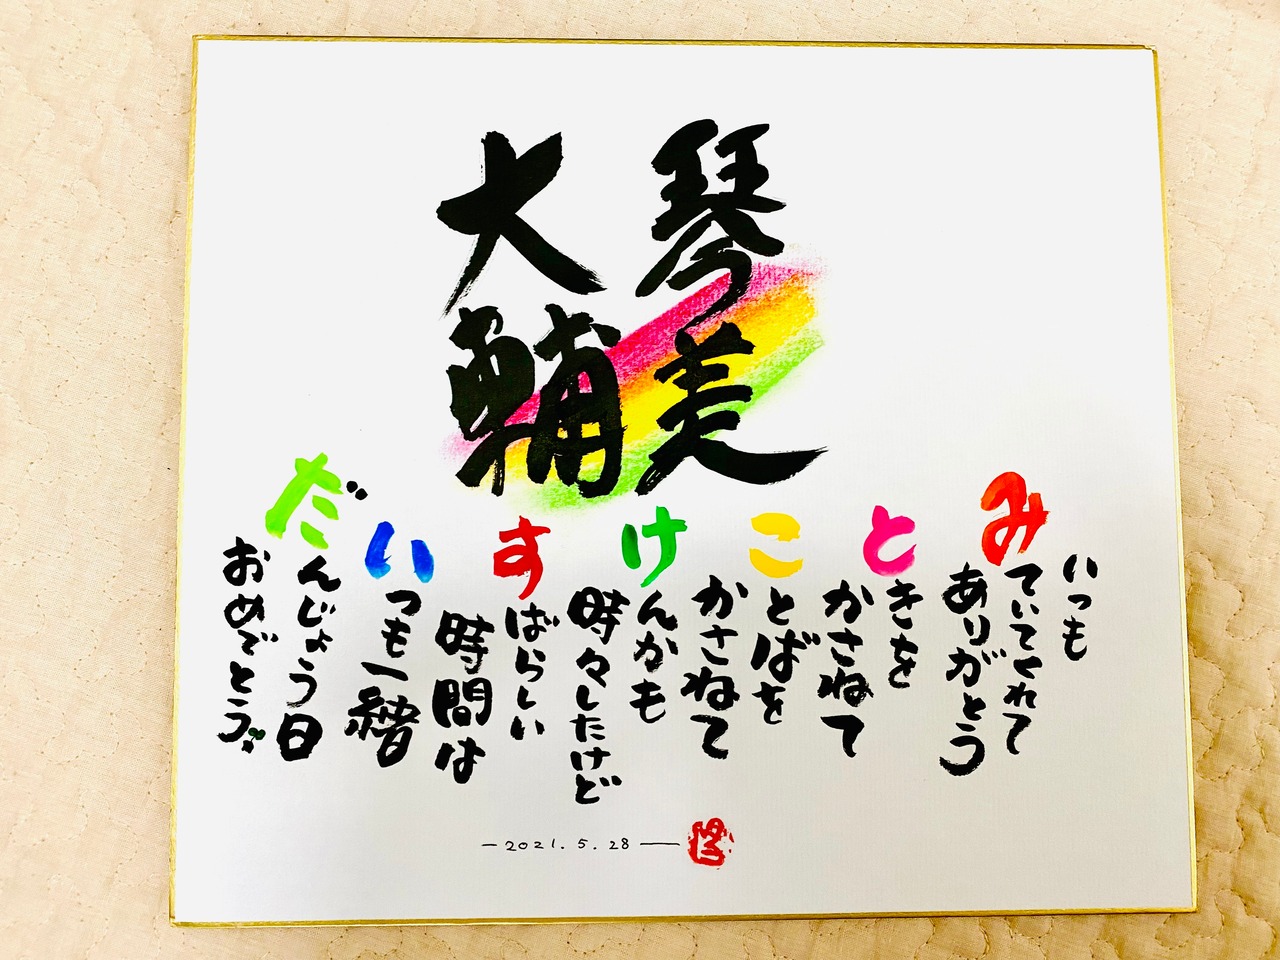 琴美
大輔
いつも
みていてくれて
ありがとう
ときを
かさねて
ことばを
かさねて
けんかも
時々したけど
すばらしい
時間は
いつも一緒
だんじょう日
おめでとう
2021.5.28